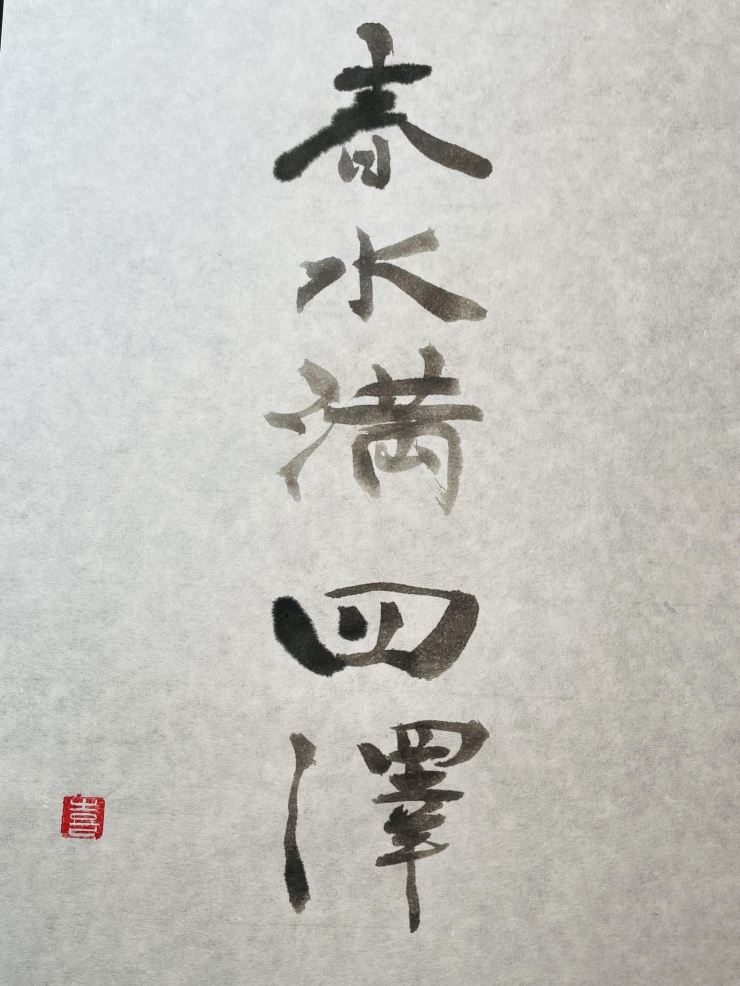 春水満四澤
喜